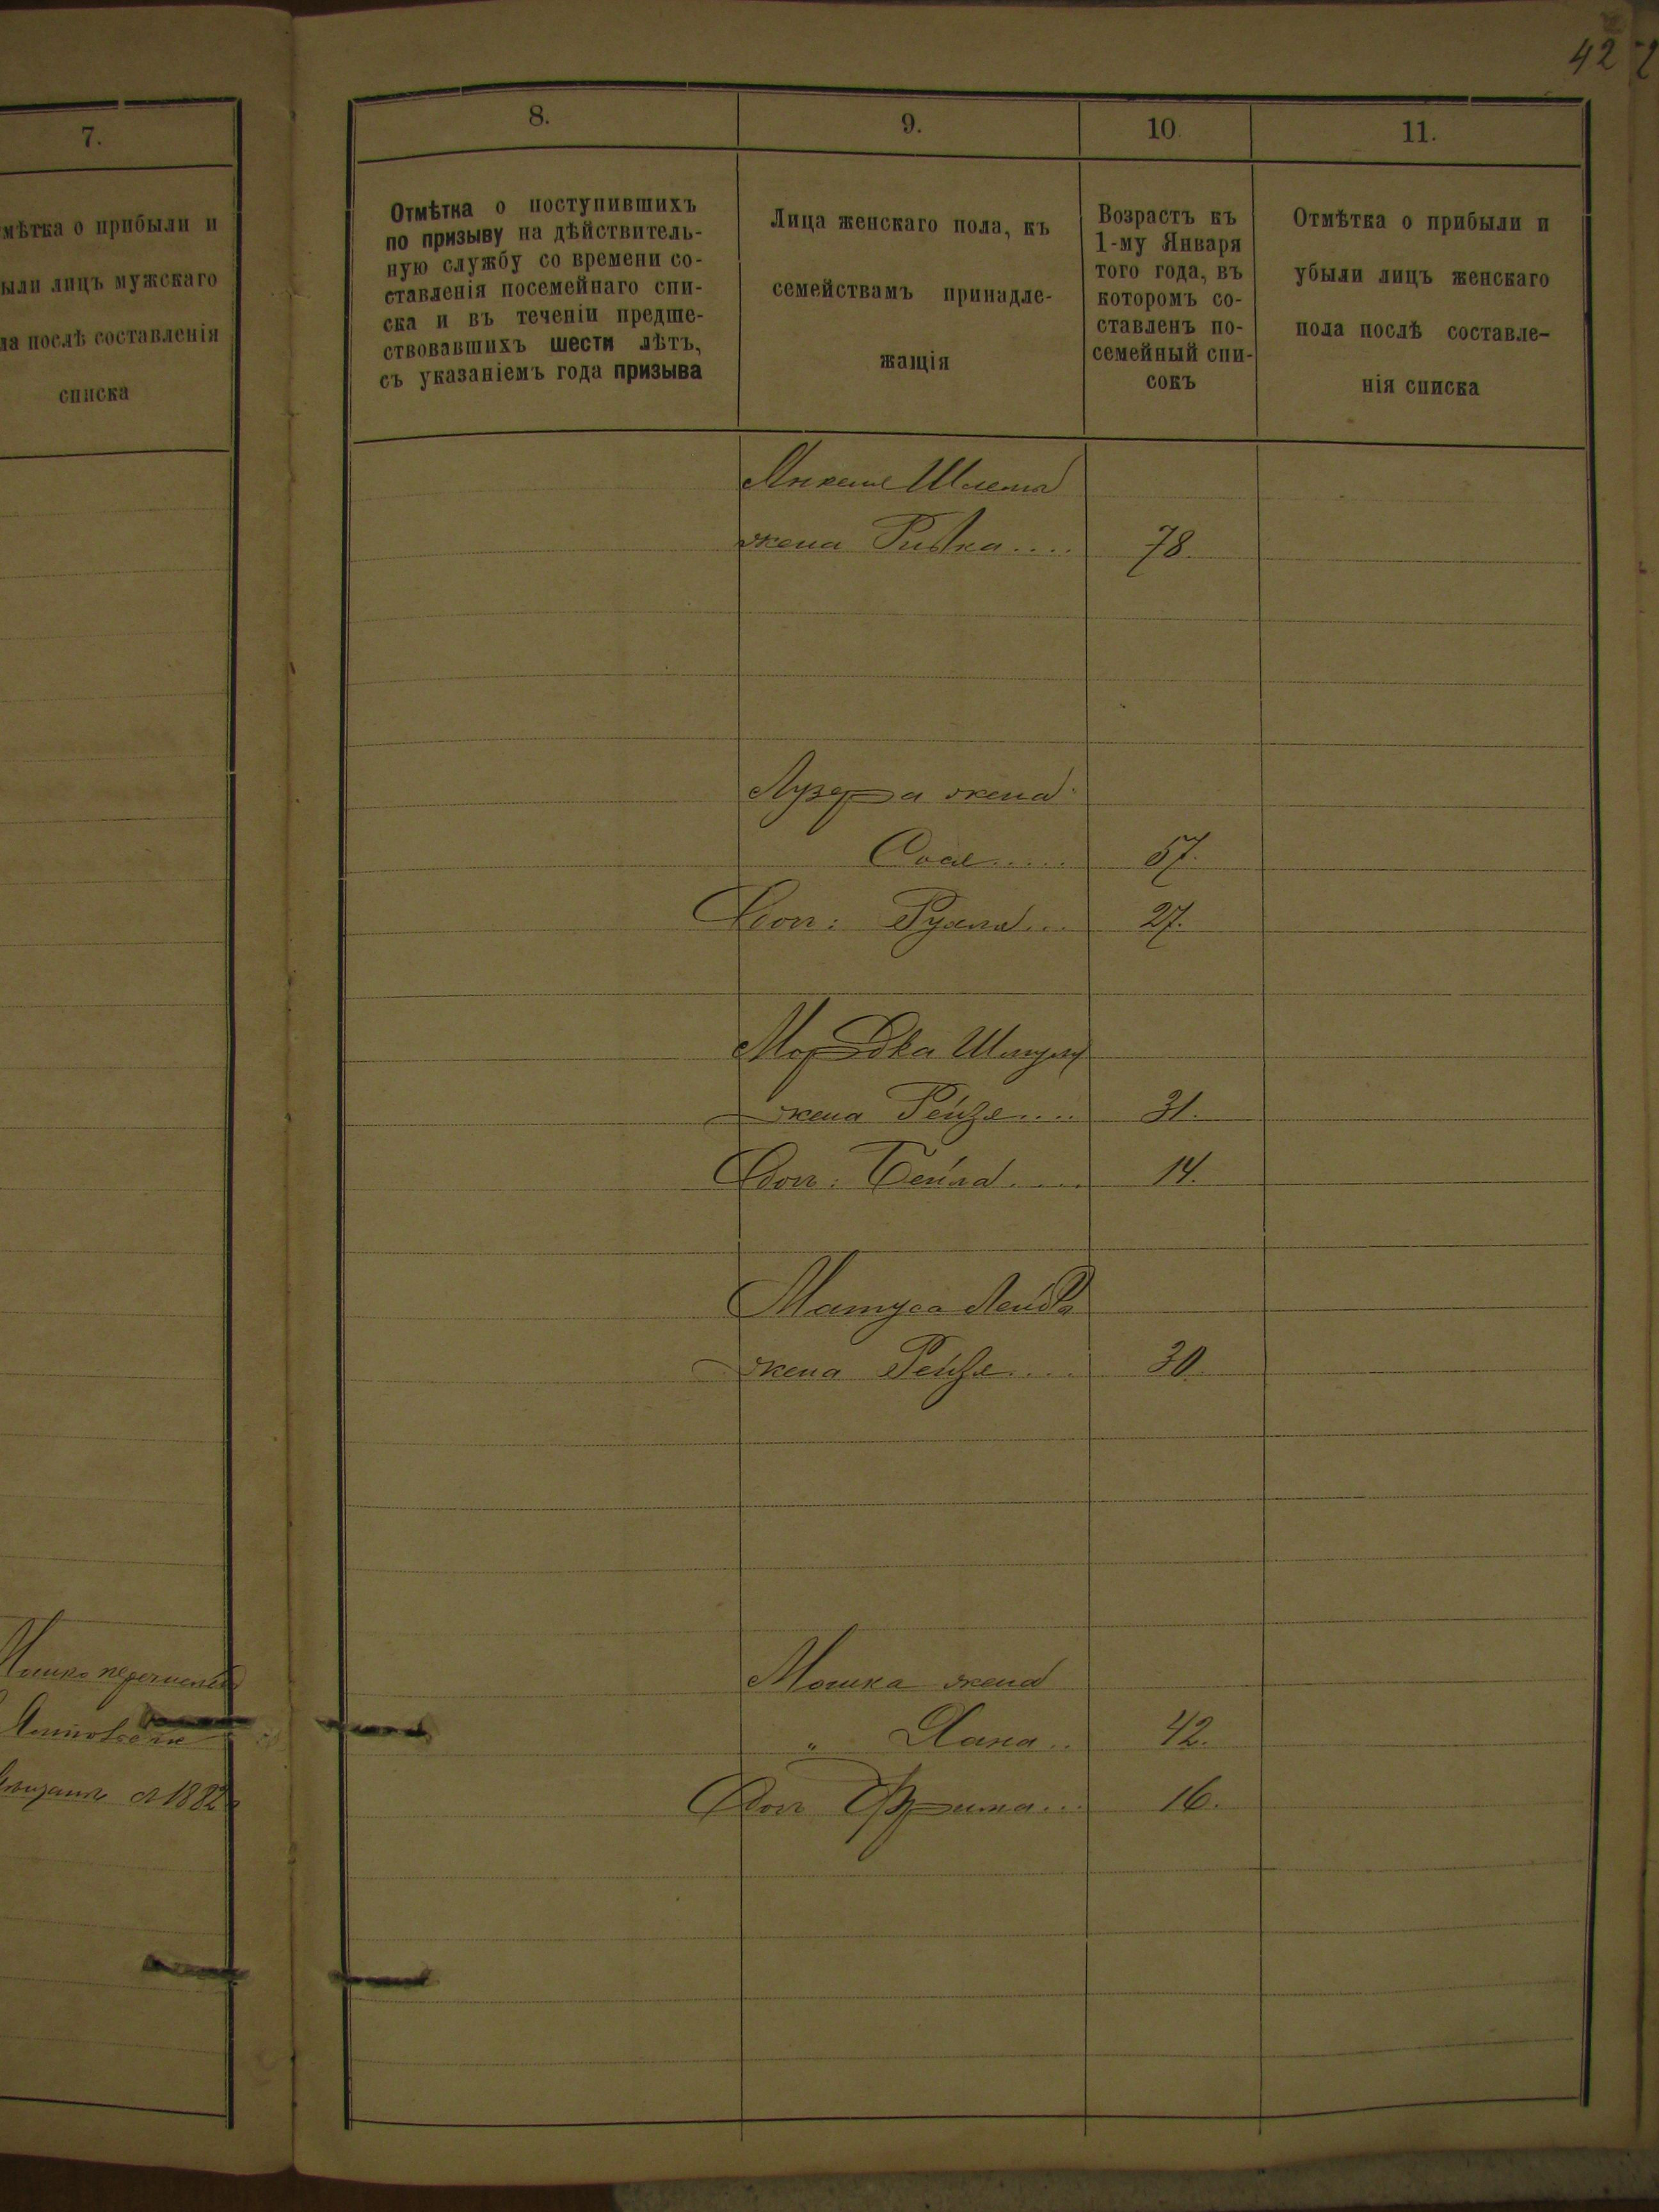 42
7.
мѣтка о прибыли и
ыли лицъ мужскаго
ла послѣ составленія
списка
1882
8.
Отмѣтка о поступившихъ
по призыву на дѣйствитель-
ную службу со времени со-
ставленія посемейнаго спи-
ска и въ теченіи предше-
ствовавшихъ шести лѣтъ,
съ указаніемъ года призыва
9.
Лица женскаго пола, къ
семействамъ принадле-
жащія
10
Возрастъ къ
1-му Января
того года, въ
которомъ со-
ставленъ по-
семейный спи-
сокъ
11.
Отмѣтка о прибыли и
убыли лицъ женскаго
пола послѣ составле-
нія списка
Янкеля Шлема
жена Ривка.... 78.
Лузера жена
Сося..... 57.
Доч: Рухля... 27.
Мордка Шмуля
жена Рейзя.... 31.
Доч: Бейла.... 14.
Матуса Лейба
жена Рейзя.... 30.
Мошка жена
" Хана.. 42.
Доч Фрима... 16.